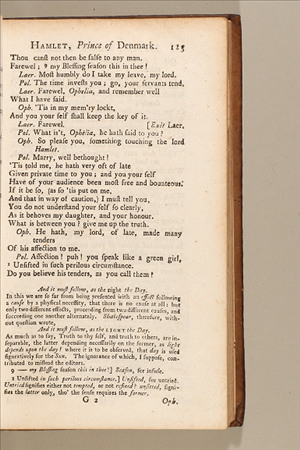 HAMLET, Prince of Denmark. 125
Thou canst not then be false to any man.
Farewel; 9 my Blessing season this in thee!
Laer. Most humbly do I take my leave, my lord.
Pol. The time invests you; go, your servants tend.
Laer. Farewel, Ophelia, and remember well
What I have said.
Oph. 'Tis in my mem'ry lockt,
And you your self shall keep the key of it.
Laer. Farewel. [Exit Laer.
Pol. What is't, Ophelia, he hath said to you?
Oph. So please you, something touching the lord
Hamlet.
Pol. Marry, well bethought!
'Tis told me, he hath very oft of late
Given private time to you; and you your self
Have of your audience been most free and bounteous:
If it be so, (as so 'tis put on me,
And that in way of caution,) I must tell you,
You do not understand your self so clearly,
As it behoves my daughter, and your honour.
What is between you? give me up the truth.
Oph. He hath, my lord, of late, made many
tenders
Of his affection to me.
Pol. Affection! puh! you speak like a green girl,
1 Unsifted in such perilous circumstance.
Do you believe his tenders, as you call them?
And it must follow, as the night the Day.
In this we are so far from being presented with an effect following
a cause by a physical necessity, that there is no cause at all; but
only two different effects, proceeding from two different causes, and
succeeding one another alternately. Shakespear, therefore, with-
out question wrote,
And it must follow, as the LIGHT the Day.
As much as to say, Truth to thy self, and truth to others, are in-
separable, the latter depending necessarily on the former, as light
depends upon the day! where it is to be observed, that day is used
figuratively for the Sun. The ignorance of which, I suppose, con-
tributed to mislead the editors.
9 — my Blessing season this in thee!] Season, for infuse.
1 Unsifted in such perilous circumstance.] Unsifted, for untried.
Untried signifies either not tempted, or not refined; unsifted, signi-
fies the latter only, tho' the sense requires the former.
G 2 Oph.